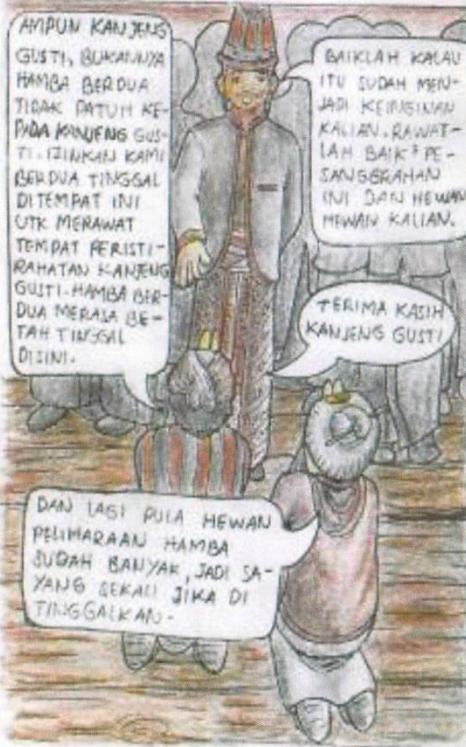 AMPUN KANJENG
GUSTI, BUKANNYA
HAMBA BERDUA
TIDAK PATUH KE-
PADA KANJENG GUS-
TI. IJINKAN KAMI
BERDUA TINGGAL
DITEMPAT INI
UTK MERAWAT
TEMPAT PERISTI-
RAHATAN KANJENG
GUSTI. HAMBA BER-
DUA MERASA BE-
TAH TINGGAL
DISINI.
BAIKLAH KALAU
ITU SUDAH MEN-
JADI KEINGINAN
KALIAN. RAWAT-
LAH BAIK² PE-
SANGGRAHAN
INI DAN HEWAN
HEWAN KALIAN.
TERIMA KASIH
KANJENG GUSTI
DAN LAGI PULA HEWAN
PELIHARAAN HAMBA
SUDAH BANYAK, JADI SA-
YANG SEKALI JIKA DI
TINGGALKAN.